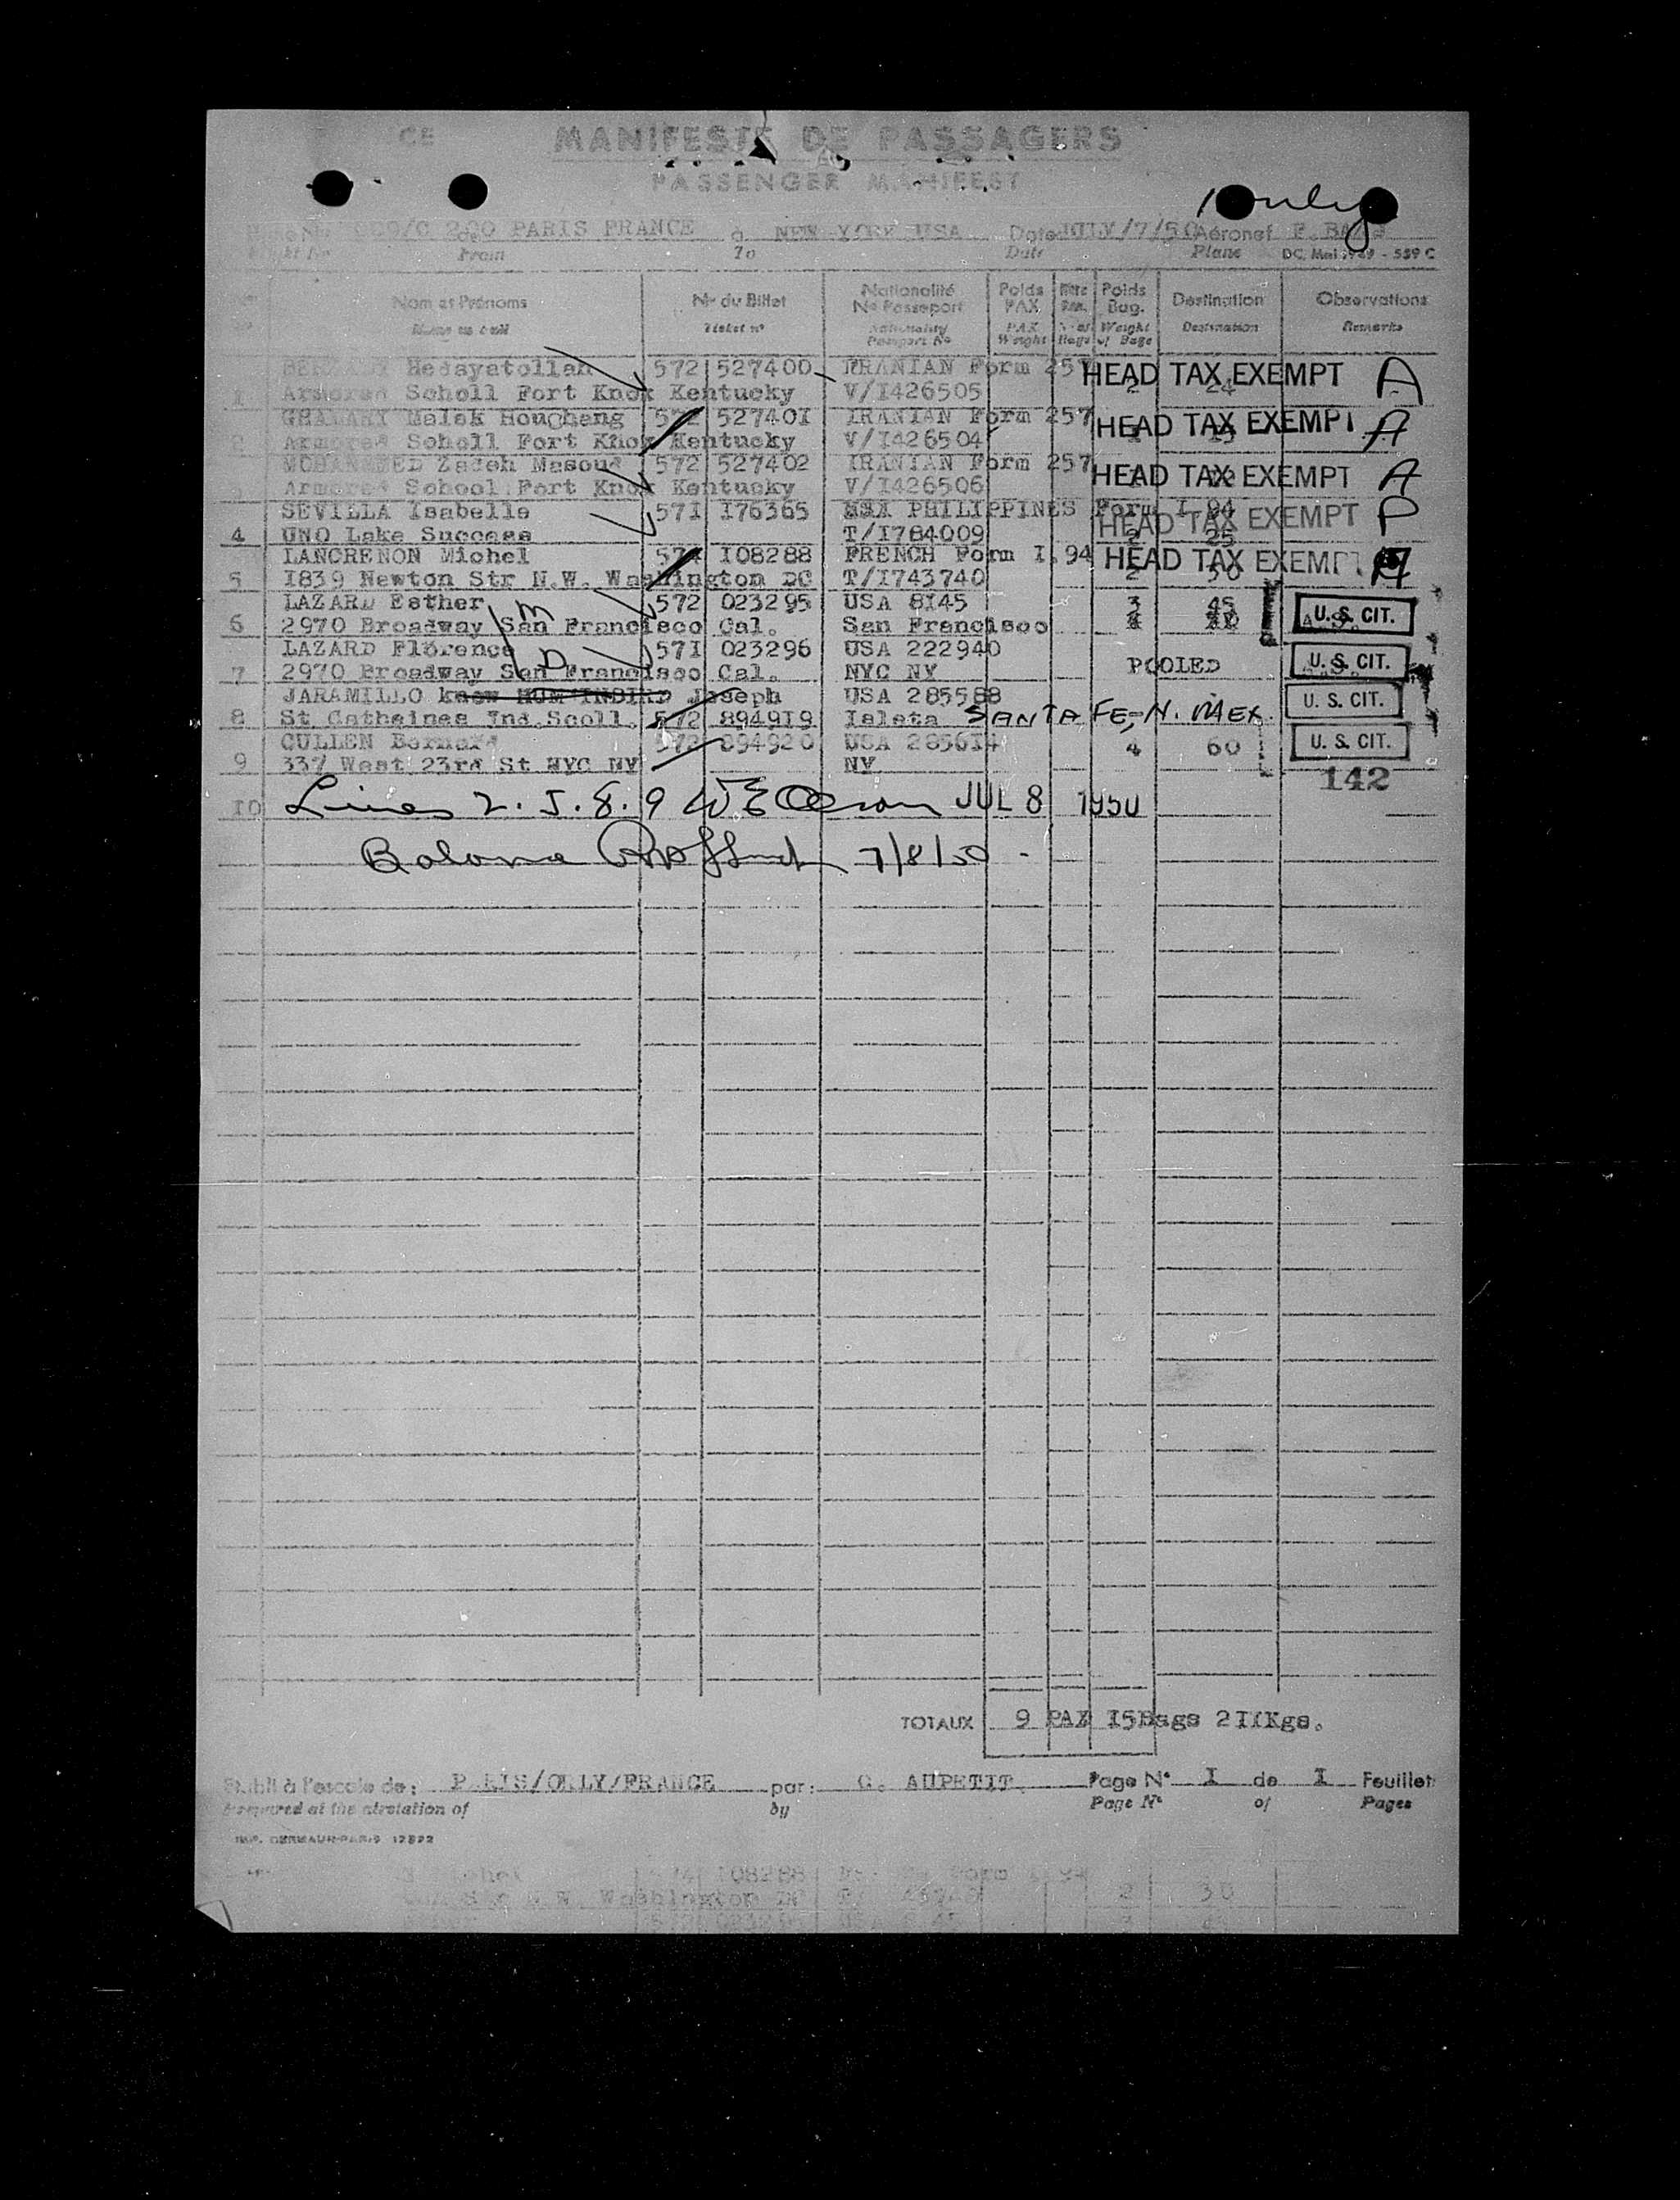 CE MANIFESTE DE PASSAGERS
PASSENGER MANIFEST
1 only
de PARIS FRANCE à NEW YORK USA Date JULY/7/50 Aéronef
From To Date Plane DC. Mai 1949 - 559 C
Nom et Prénoms Nº du Billet Nationalité Nº Passeport Poids PAX Poids Bag. Destination Observations
Ticket nº Nationality Passport Nº PAX Weight Bags Weight of Bags Destination Remarks
Hedayatollah 572 527400 IRANIAN Form 257 HEAD TAX EXEMPT A
1 Armored Scholl Fort Knox Kentucky V/I426505 2 24
Malek Houchang 572 52740I IRANIAN Form 257 HEAD TAX EXEMPT A
2 Armored Scholl Fort Knox Kentucky V/I426504
MOHAMMED Zadeh Masoud 572 527402 IRANIAN Form 257 HEAD TAX EXEMPT A
3 Armored School Fort Knox Kentucky V/I426506
SEVILLA Isabelle 57I I76365 PHILIPPINES Form I 94 HEAD TAX EXEMPT P
4 UNO Lake Success T/I784009 2 25
LANCRENON Michel 57I I08288 FRENCH Form I.94 HEAD TAX EXEMPT
5 I839 Newton Str N.W. Washington DC T/I743740 2 30
LAZARD Esther m 572 023295 USA 8I45 3 45 U. S. CIT.
6 2970 Broadway San Francisco Cal. San Francisco
LAZARD Florence D 57I 023296 USA 222940 U. S. CIT.
7 2970 Broadway San Francisco Cal. NYC NY POOLED
JARAMILLO Joseph USA 285588 U. S. CIT.
8 St Catheines Ind.Scoll. 572 8949I9 Isleta SANTA FE, N. MEX.
CULLEN Bernard 572 894920 USA 2856I4 4 60 U. S. CIT.
9 337 West 23rd St NYC NY NY
142
I0 Lines 2. 5. 8. 9 JUL 8 1950
7/8/50 -
TOTAUX 9 PAX I5Bags 2IIKgs.
Etabli à l'escale de: PARIS/ORLY/FRANCE par: G. AUPETIT Page Nº I de I Feuillets
Prepared at the airstation of by Page Nº of Pages
IMP. DERMAUR-PARIS 12822
I08288
N.W. Washington DC 2 30